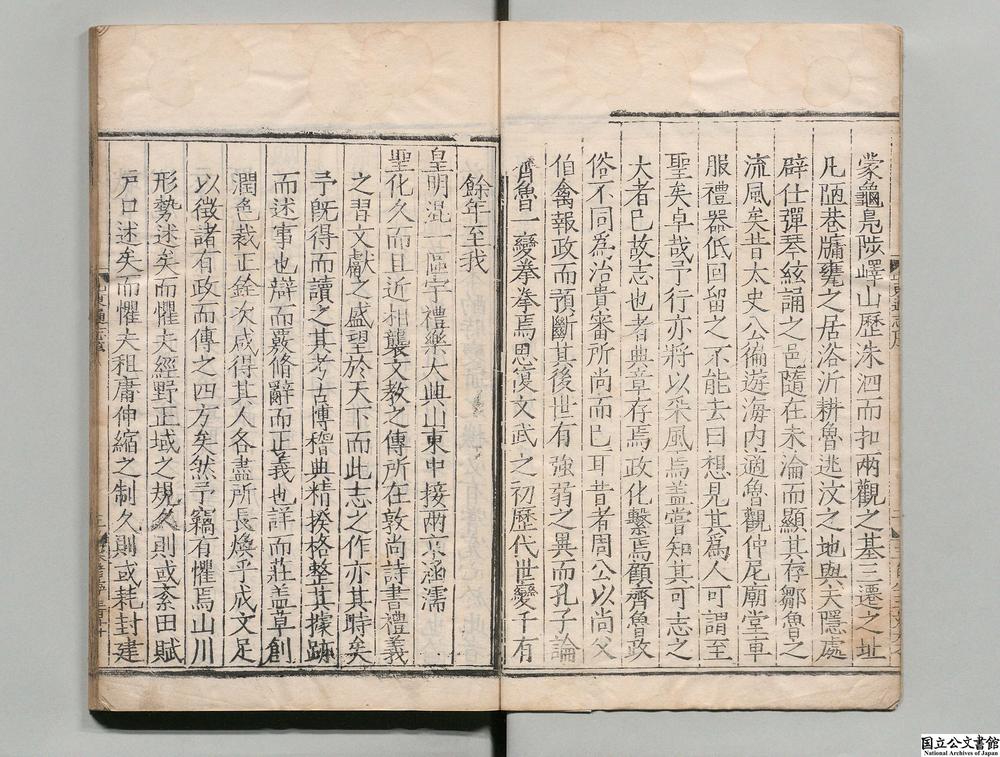 蒙龜鳧陟嶧山歷洙泗而扣兩觀之基三遷之址
凡陋巷牖甕之居浴沂耕魯逃汶之地與夫隱處
辟仕彈琴絃誦之邑隨在未淪而顯其存鄒魯之
流風矣昔太史公徧遊海内適魯觀仲尼廟堂車
服禮器低回留之不能去曰想見其爲人可謂至
聖矣卓哉予行亦將以采風焉盖嘗知其可志之
大者巳故志也者典章存焉政化繫焉顧齊魯政
俗不同爲治貴審所尚而巳耳昔者周公以尚父
伯禽報政而預斷其後世有強弱之異而孔子論
齊魯一變拳拳焉思復文武之初歷代世變千有
餘年至我
皇明混一區宇禮樂大典山東中接兩京涵濡
聖化久而且近相襲文教之傳所在敦尚詩書禮義
之習文獻之盛望於天下而此志之作亦其時矣
予旣得而讀之其考古博稽典精揆格整其據跡
而述事也辯而覈脩辭而正義也詳而莊盖草創
潤色裁正銓次咸得其人各盡所長煥乎成文足
以徵諸有政而傳之四方矣然予竊有懼焉山川
形勢述矣而懼夫經野正域之規久則或紊田賦
戸口述矣而懼夫租庸伸縮之制久則或耗封建
東通志序
国立公文書館
National Archives of Japan